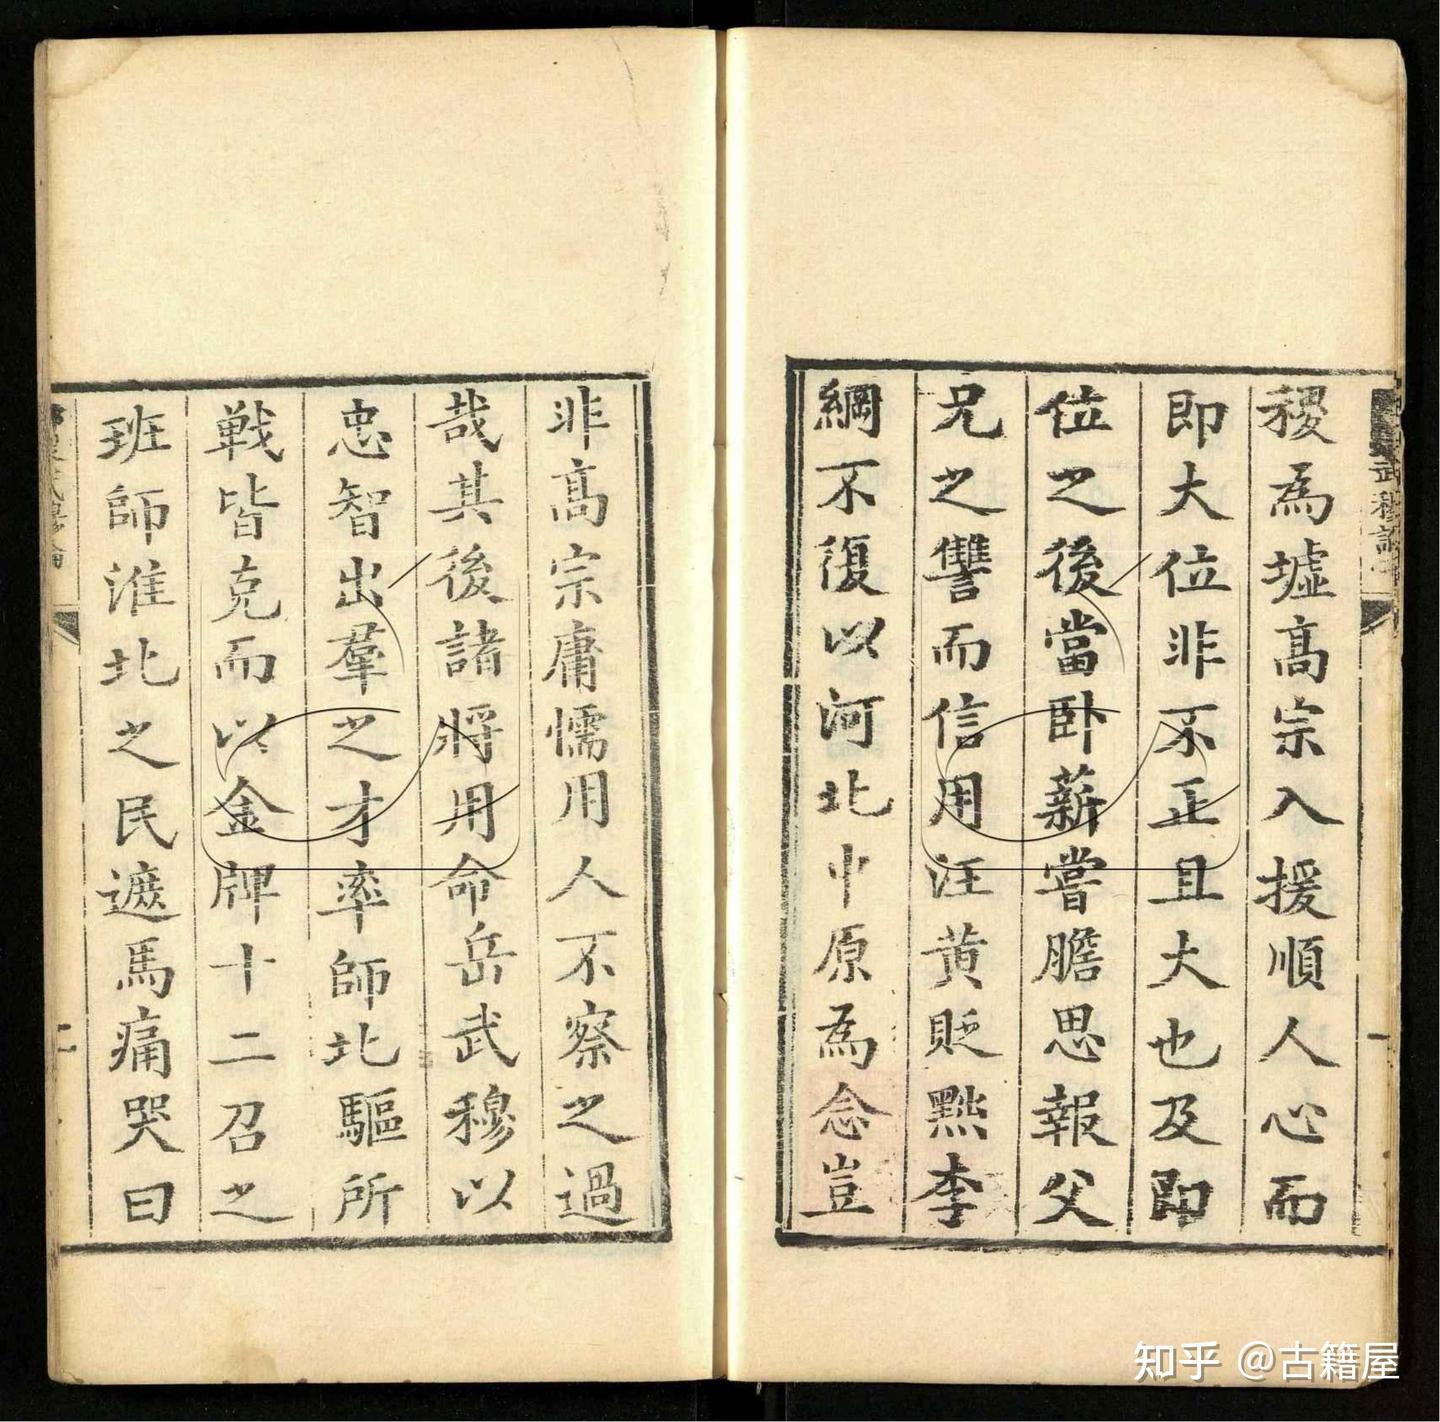 稷為墟髙宗入援順人心而
即大位非不正且大也及即
位之後當卧薪嘗膽思報父
兄之讐而信用汪黄貶黜李
綱不復以河北中原為念豈
非髙宗庸懦用人不察之過
哉其後諸將用命岳武穆以
忠智出羣之才率師北驅所
戰皆克而以金牌十二召之
班師淮北之民遮馬痛哭曰
武穆論
一
二
知乎 @古籍屋